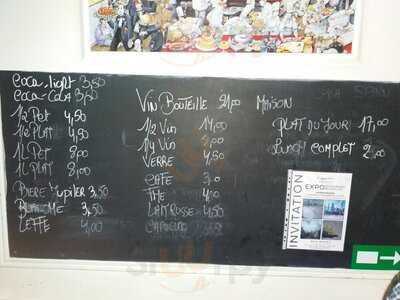 Coca light 3,50
Coca-Cola 3,50
1/2 Pet 4,50
1/2 Plat 4,50
1L Pet 8,00
1L Plat 8,00
Biere Jupiler 3,50
Blanche 3,50
Leffe 4,00
Vin Bouteille 21,00 Maison
1/2 Vin 14,00
1/4 Vin 8,00
Verre 4,50
Cafe
The 4,00
Lait Russe 4,50
Plat du Jour 17,00
Lunch Complet
INVITATION
EXPO